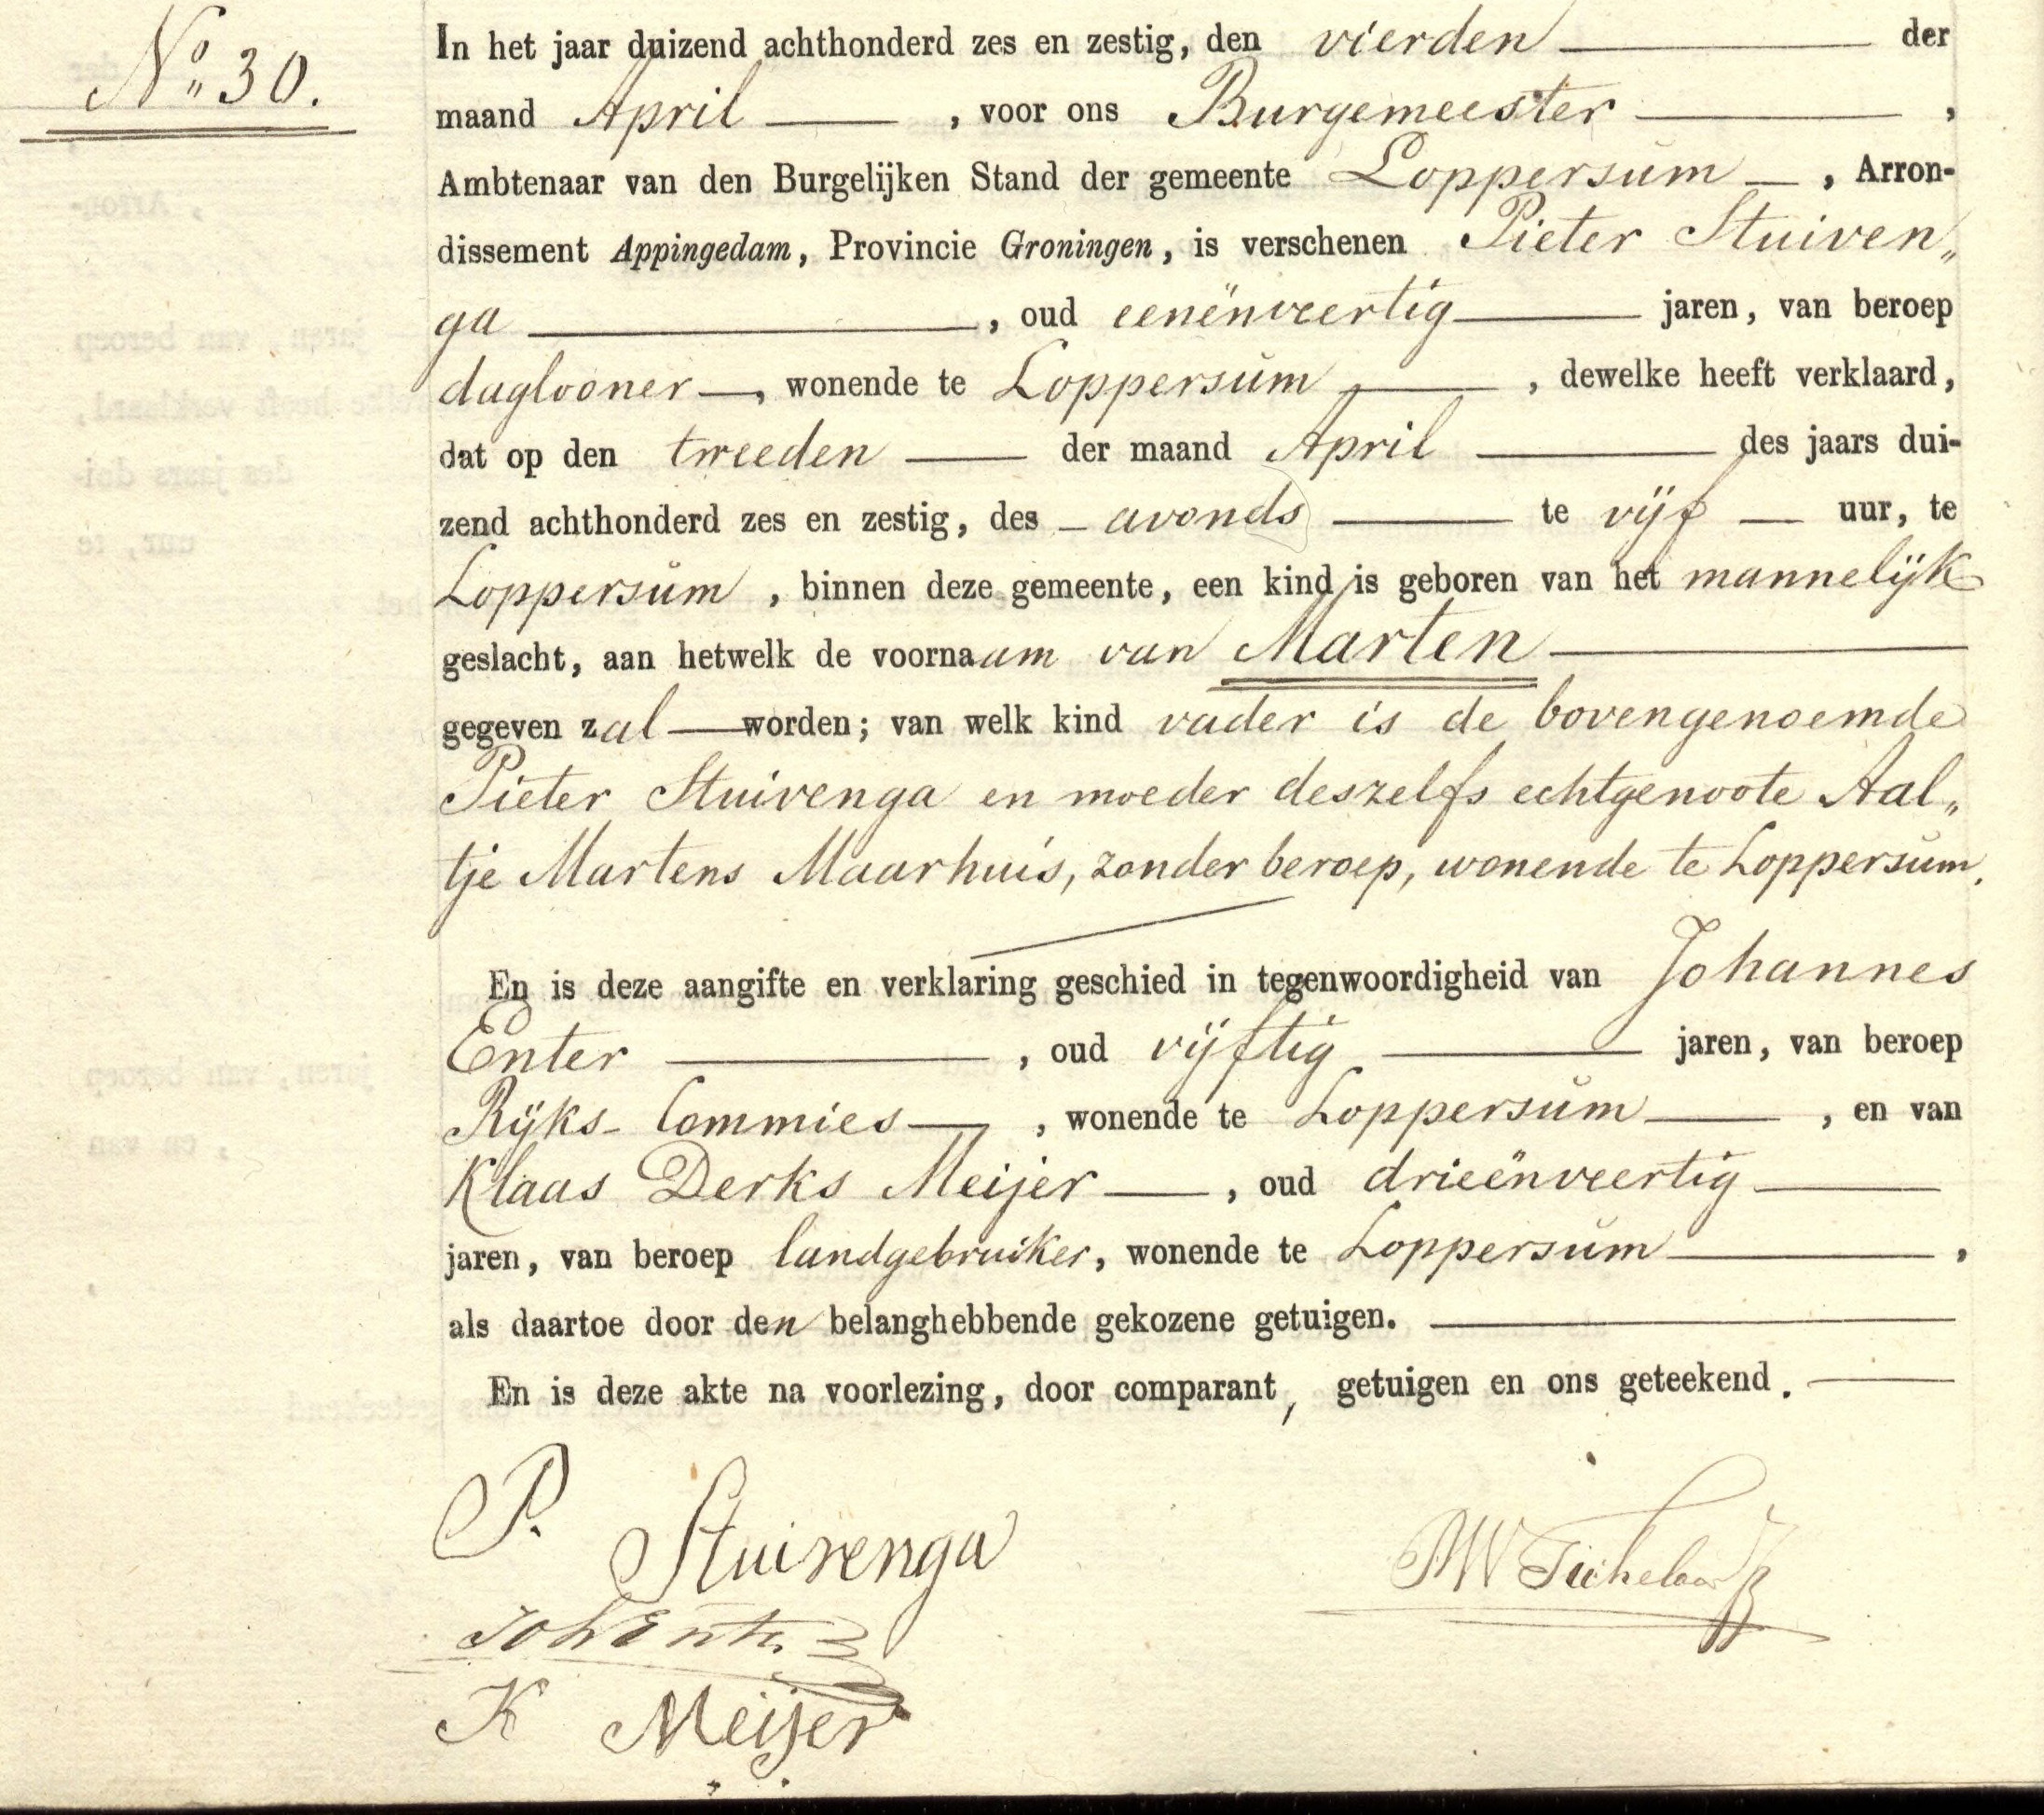 No 30.
In het jaar duizend achthonderd zes en zestig, den vierden der
maand April, voor ons Burgemeester,
Ambtenaar van den Burgelijken Stand der gemeente Loppersum, Arron-
dissement Appingedam, Provincie Groningen, is verschenen Pieter Stuiven„
ga, oud eenënveertig jaren, van beroep
daglooner, wonende te Loppersum, dewelke heeft verklaard,
dat op den tweeden der maand April des jaars dui-
zend achthonderd zes en zestig, des avonds te vijf uur, te
Loppersum, binnen deze gemeente, een kind is geboren van het mannelijk
geslacht, aan hetwelk de voornaam van Marten
gegeven zal worden; van welk kind vader is de bovengenoemde
Pieter Stuivenga en moeder deszelfs echtgenoote Aal„
tje Martens Maarhuis, zonder beroep, wonende te Loppersum.
En is deze aangifte en verklaring geschied in tegenwoordigheid van Johannes
Enter, oud vijftig jaren, van beroep
Rijks- Commies, wonende te Loppersum, en van
Klaas Derks Meijer, oud drieënveertig
jaren, van beroep landgebruiker, wonende te Loppersum,
als daartoe door den belanghebbende gekozene getuigen.
En is deze akte na voorlezing, door comparant, getuigen en ons geteekend.
P. Stuivenga
Joh Enter
K Meijer